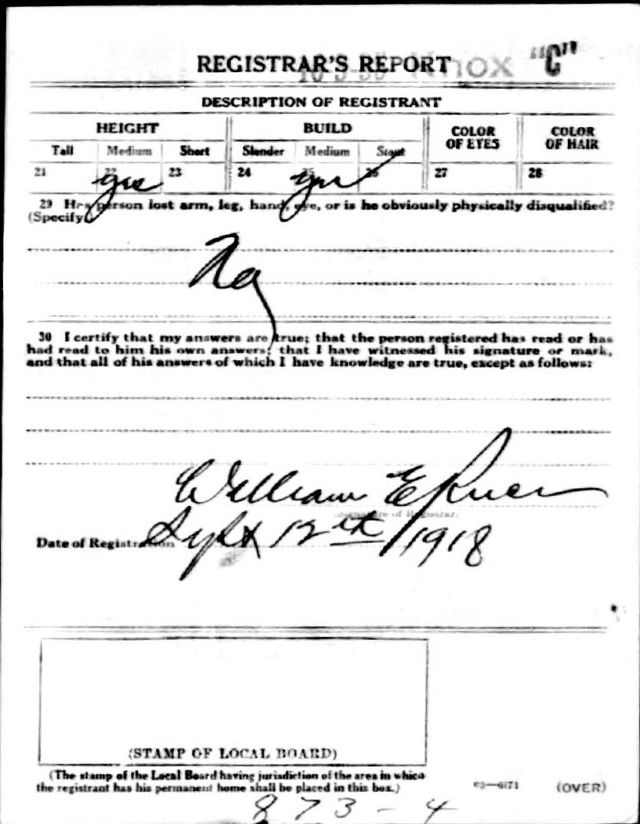 REGISTRAR'S REPORT Knox "C"
DESCRIPTION OF REGISTRANT
HEIGHT BUILD COLOR OF EYES COLOR OF HAIR
Tall Medium Short Slender Medium Stout
21 22 yes 23 24 25 yes 26 27 28
29 Has person lost arm, leg, hand, eye, or is he obviously physically disqualified?
(Specify)
No
30 I certify that my answers are true; that the person registered has read or has
had read to him his own answers; that I have witnessed his signature or mark,
and that all of his answers of which I have knowledge are true, except as follows:
William E
(Signature of Registrar)
Date of Registration Sept 12th/1918
(STAMP OF LOCAL BOARD)
(The stamp of the Local Board having jurisdiction of the area in which
the registrant has his permanent home shall be placed in this box.)
03—6171 (OVER)
873-4